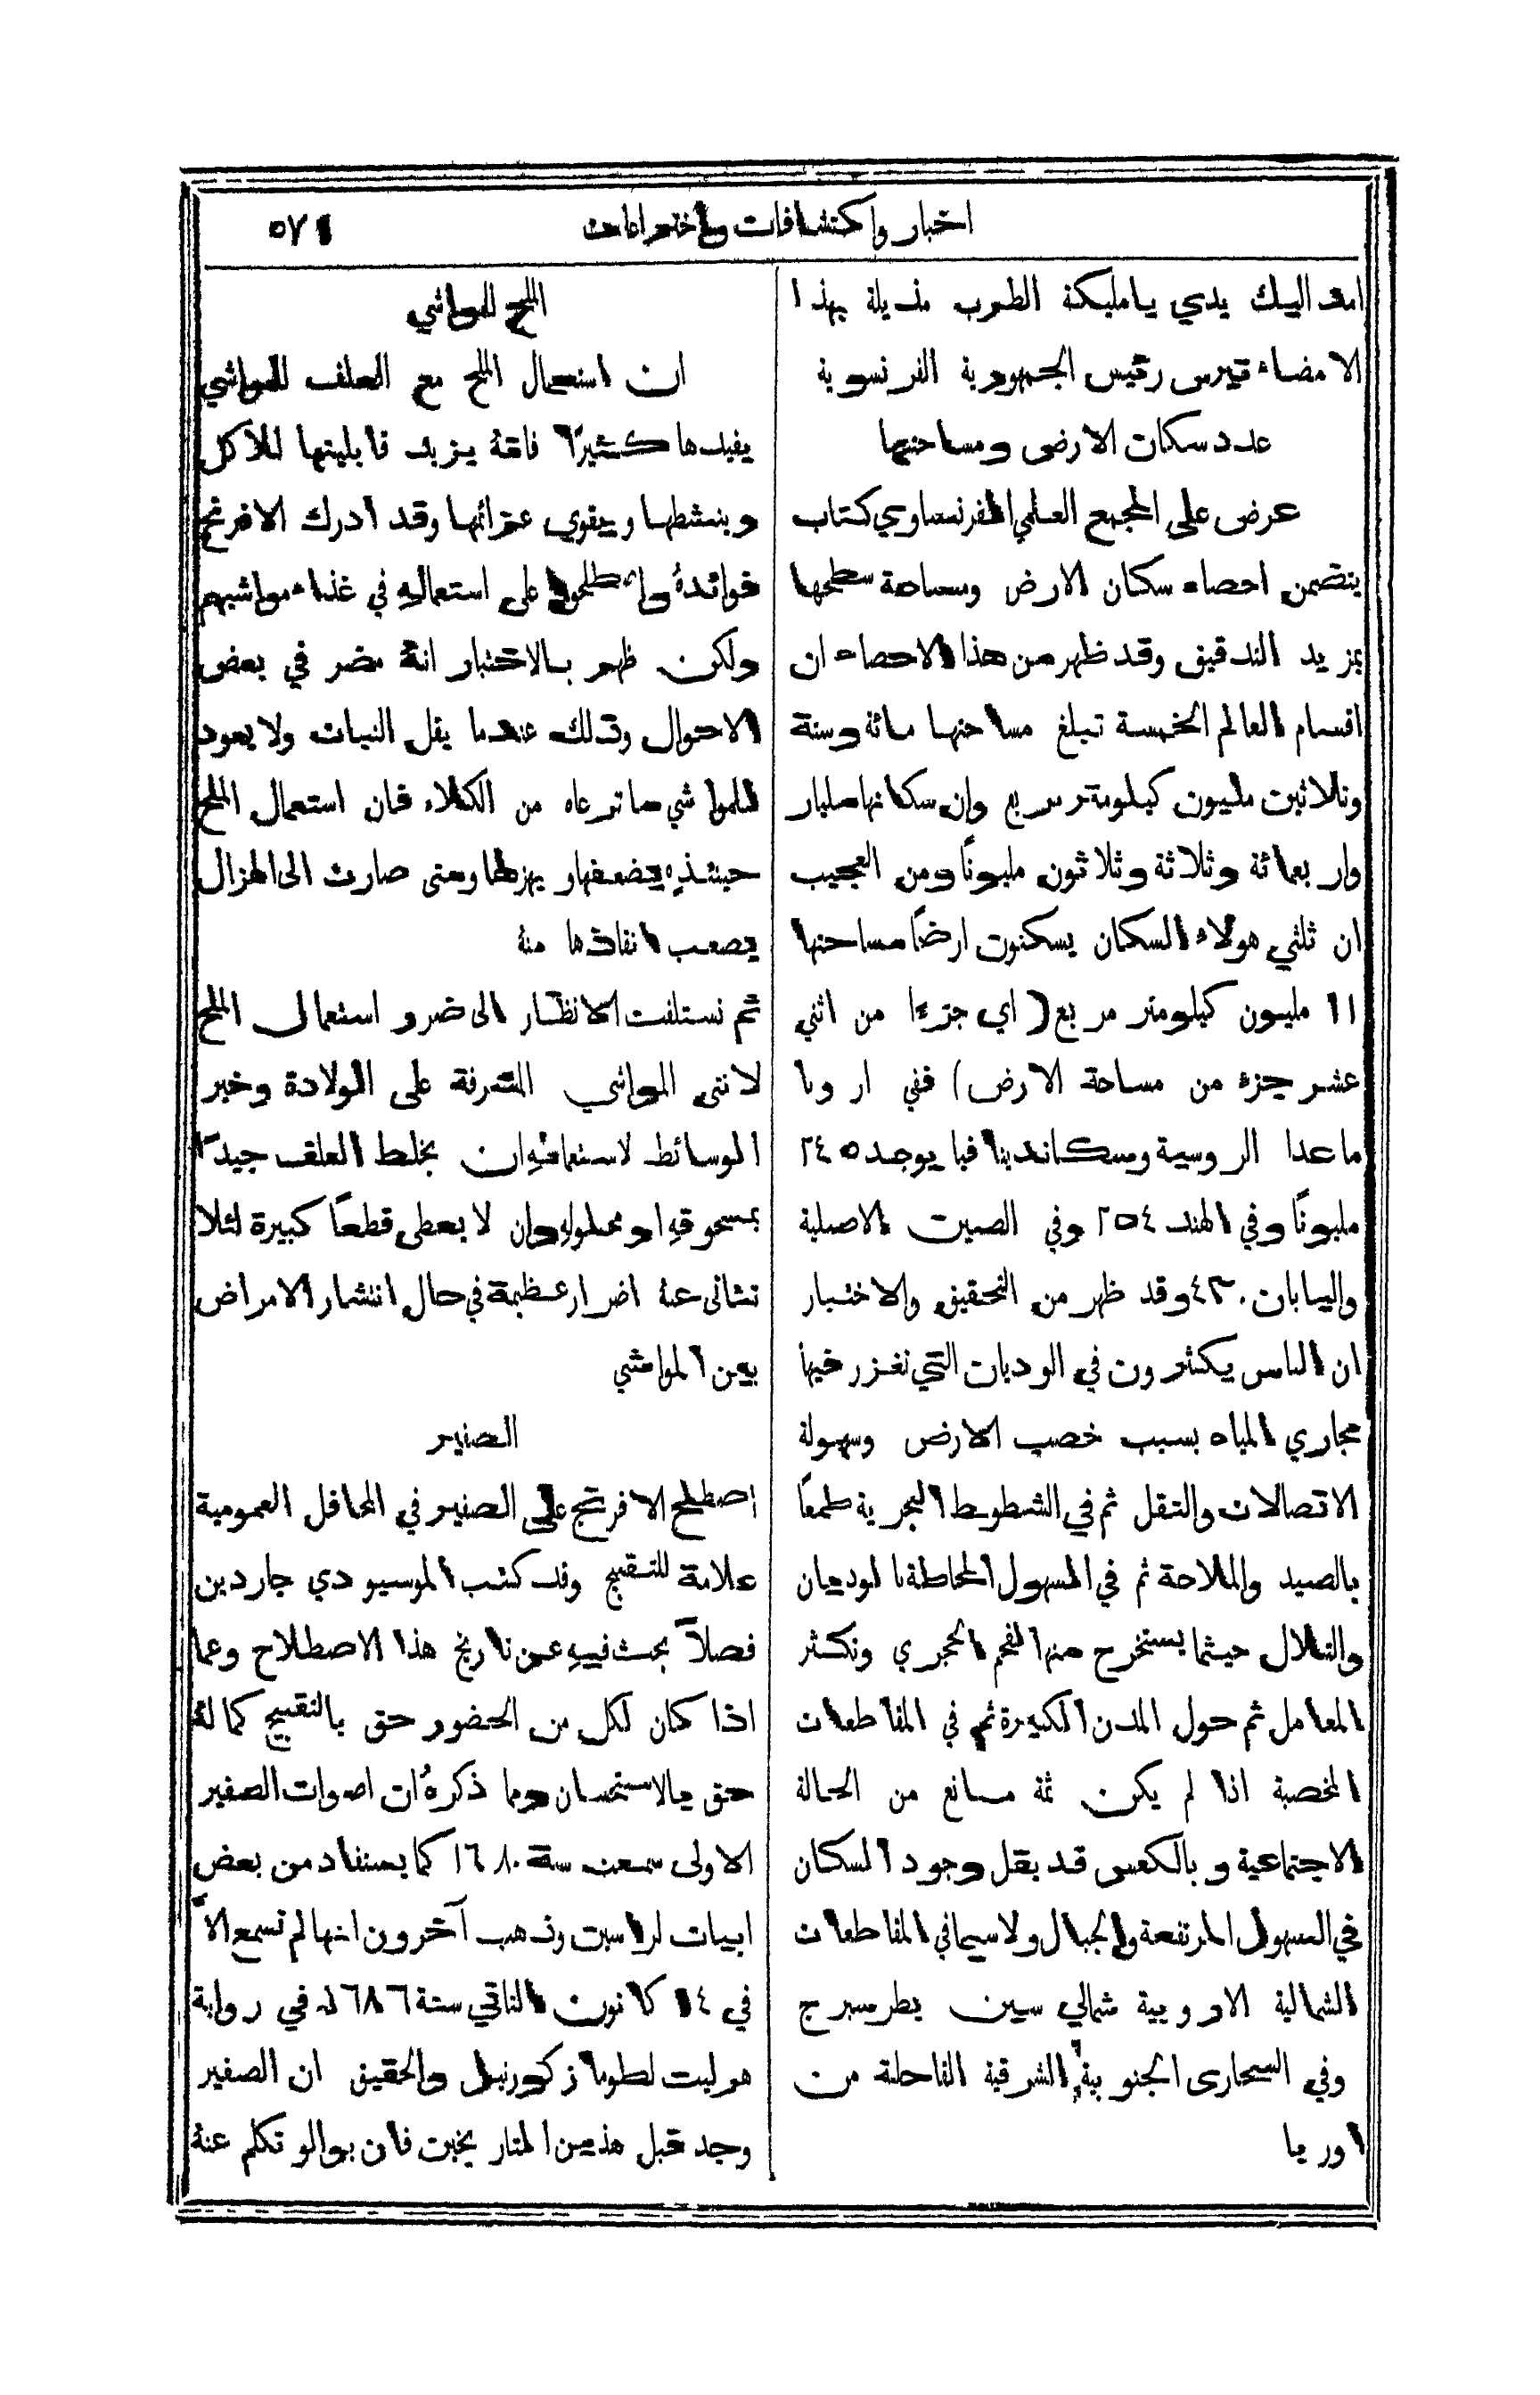 اخبار واكتشافات واختراعات
٥٧١
امد اليك يدي يا مليكة الطرب مذيلة بهذا
الامضاء تيرس رئيس الجمهورية الفرنسوية
عدد سكان الارض ومساحتها
عرض على المجمع العلمي الفرنساوي كتاب
يتضمن احصاء سكان الارض ومساحة سطحها
بمزيد التدقيق وقد ظهر من هذا الاحصاء ان
اقسام العالم الخمسة تبلغ مساحتها مائة وستة
وثلاثين مليون كيلومتر مربع وان سكانها مليار
واربعمائة وثلاثة وثلاثون مليونًا ومن العجيب
ان ثلثي هولاء السكان يسكنون ارضًا مساحتها
١١ مليون كيلومتر مربع (اي جزءًا من اثني
عشر جزء من مساحة الارض) ففي اروبا
ما عدا الروسية وسكاندينافيا يوجد ٢٤٥
مليونًا وفي الهند ٢٥٤ وفي الصين الاصلية
واليابان ٤٣٠ وقد ظهر من التحقيق والاختبار
ان الناس يكثرون في الوديان التي تغزر فيها
مجاري المياه بسبب خصب الارض وسهولة
الاتصالات والتنقل ثم في الشطوط البحرية طمعًا
بالصيد والملاحة ثم في السهول المحاطة بالوديان
والتلال حيثما يستخرج منها الفحم الحجري وتكثر
المعامل ثم حول المدن الكبيرة ثم في المقاطعات
المخصبة اذا لم يكن ثمة مانع من الحالة
الاجتماعية وبالعكس قد يقل وجود السكان
في السهول المرتفعة والجبال ولا سيما في المقاطعات
الشمالية الاروبية شمالي سين بطرسبرج
وفي السحارى الجنوبية الشرقية القاحلة من
اوربا
الملح للمواشي
ان استعمال الملح مع العلف للمواشي
يفيدها كثيرًا فانهُ يزيد قابليتها للاكل
وينشطها ويقوي عزائمها وقد ادرك الافرنج
فوائدهُ واصطلحوا على استعمالهِ في غذاء مواشيهم
ولكن ظهر بالاختبار انهُ مضر في بعض
الاحوال وذلك عندما يقل النبات ولا يعود
للمواشي ما ترعاه من الكلاء فان استعمال الملح
حينئذٍ يضعفها ويهزلها ومتى صارت الى الهزال
يصعب انقاذها منهُ
ثم نستلفت الانظار الى ضرر استعمال الملح
لانثى المواشي المشرفة على الولادة وخير
الوسائط لاستعمالهِ ان يخلط العلف جيدًا
بمسحوقهِ او محلولهِ وان لا يعطى قطعًا كبيرة لئلا
تتأتى عنهُ اضرار عظيمة في حال انتشار الامراض
بين المواشي
الصفير
اصطلح الافرنج على الصفير في المحافل العمومية
علامة للتقبيح وقد كتب الموسيو دي جاردين
فصلاً بحث فيهِ عن تاريخ هذا الاصطلاح وعما
اذا كان لكل من الحضور حق بالتقبيح كما لهُ
حق بالاستحسان ومما ذكرهُ ان اصوات الصفير
الاولى سمعت سنة ١٦٨٠ كما يستفاد من بعض
ابيات لراسين وذهب آخرون انها لم تسمع الاَّ
في ١٤ كانون الثاني سنة ١٦٨٦ في رواية
هو ليت لطوماز كورنيل والحقيق ان الصفير
وجد قبل هذين بخين فان بوالو تكلم عنهُ